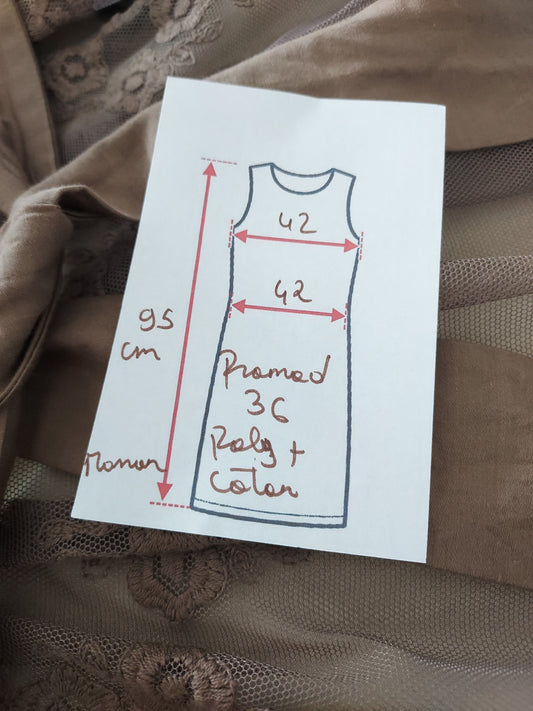 42
42
95
cm
Promod
36
Poly +
Coton
Maron